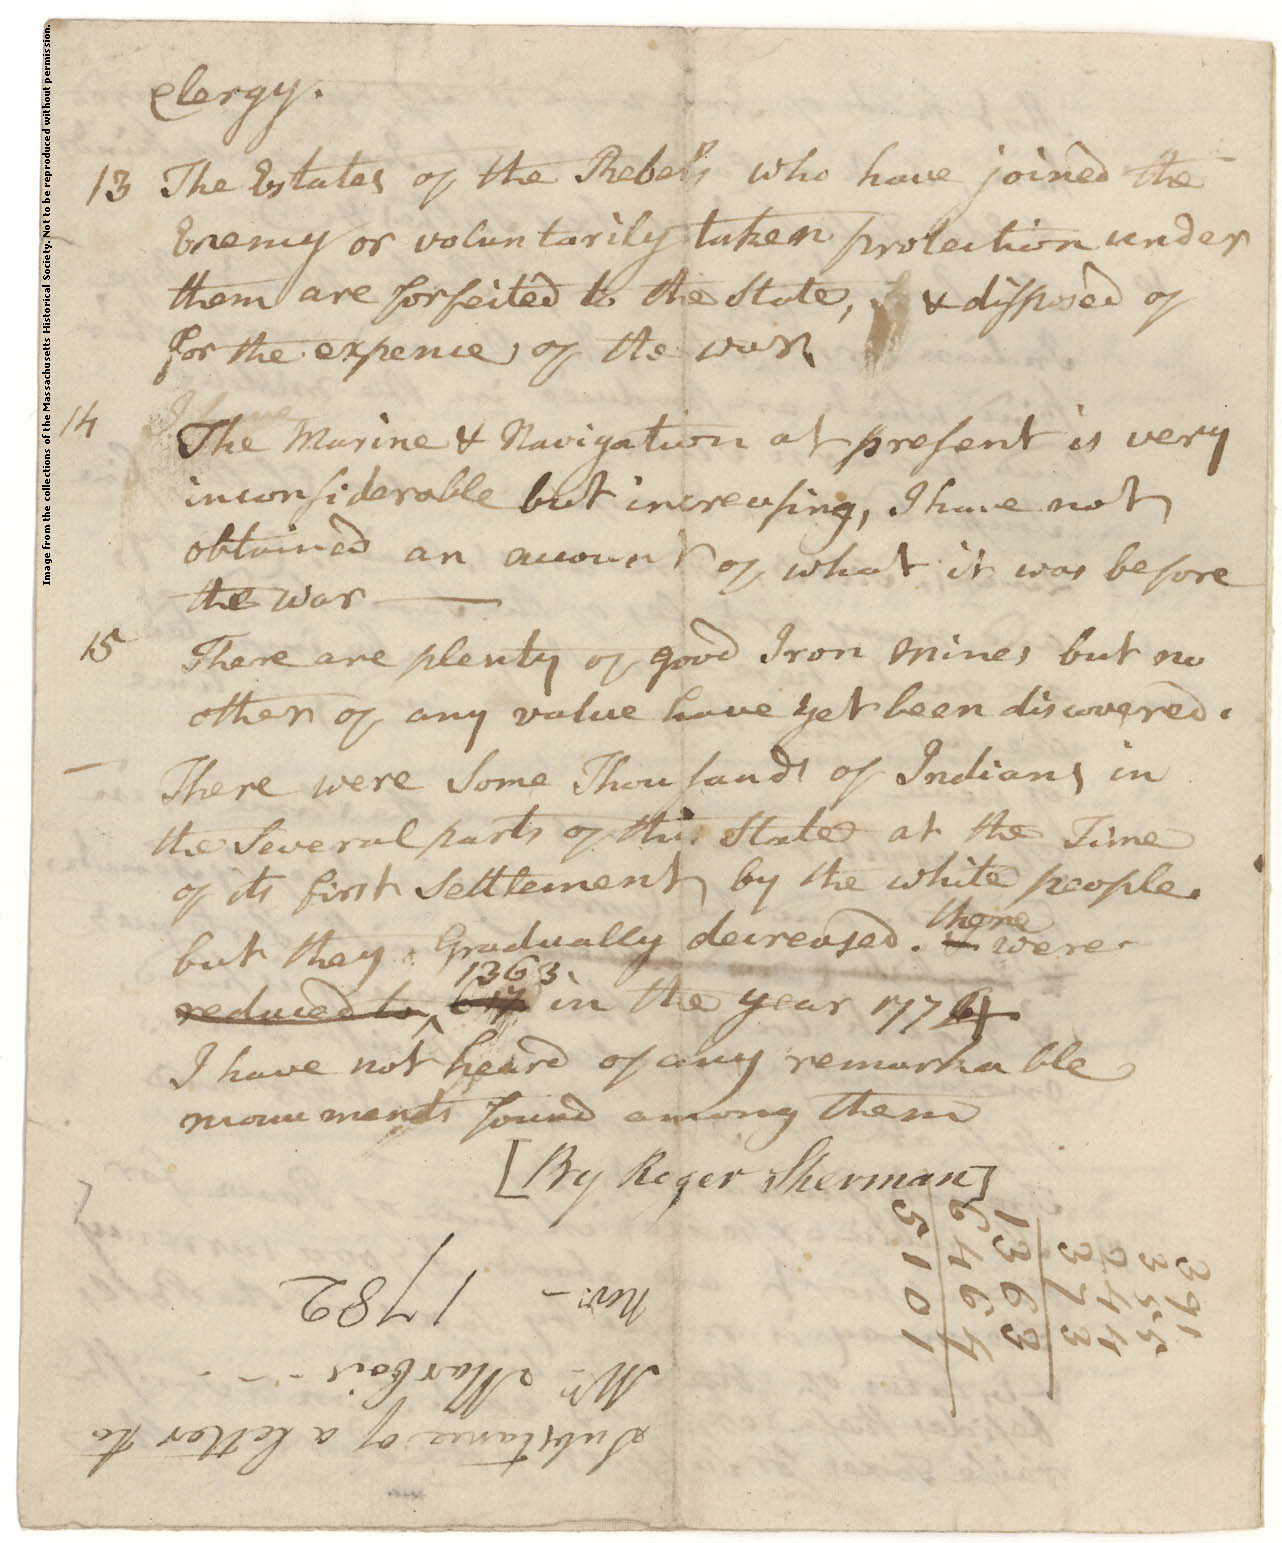 Clergy.
13 The Estates of the Rebels who have joined the
Enemy or voluntarily taken protection under
them are forfeited to the State, & disposed of
for the expences of the war,
14 The Marine & Navigation at present is very
inconsiderable but increasing, I have not
obtained an account of what it was before
the war ——
15 There are plenty of good Iron mines but no
other of any value have yet been discovered.
— There were Some Thousands of Indians in
the Several parts of this State at the Time
of its first Settlement by the white people.
there
but they Gradually decreased. were
1363.
reduced to in the year 1774
I have not heard of any remarkable
monuments found among them
[By Roger Sherman]
Substance of a letter to
Mr. Marbois - - - -
Novr. — 1782
391
355
243
373
1363
6464
5101
Image from the collections of the Massachusetts Historical Society. Not to be reproduced without permission.